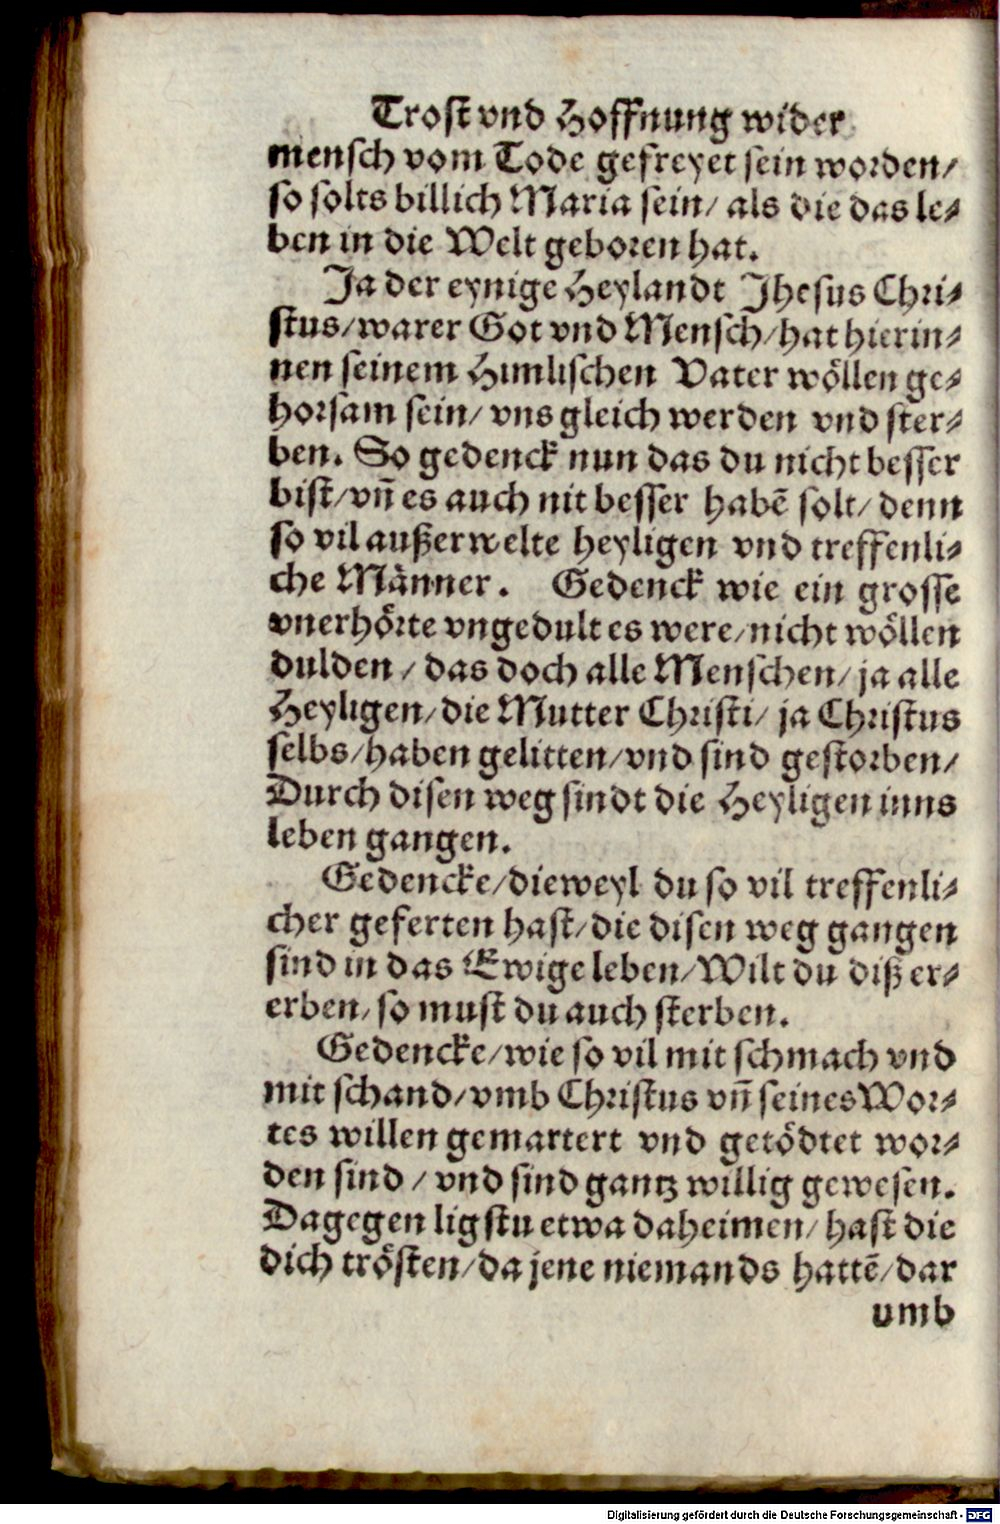 Trost vnd Hoffnung wider
mensch vom Tode gefreyet sein worden/
so solts billich Maria sein/ als die das le⸗
ben in die Welt geboren hat.
Ja der eynige Heylandt Jhesus Chri⸗
stus/warer Got vnd Mensch/hat hierin⸗
nen seinem Himlischen Vater wöllen ge⸗
horsam sein/ vns gleich werden vnd ster⸗
ben. So gedenck nun das du nicht besser
bist/vn̄ es auch nit besser habē solt/ denn
so vil außerwelte heyligen vnd treffenli⸗
che Männer. Gedenck wie ein grosse
vnerhörte vngedult es were/nicht wöllen
dulden / das doch alle Menschen/ ja alle
Heyligen/die Mutter Christi/ ja Christus
selbs/haben gelitten/vnd sind gestorben/
Durch disen weg sindt die Heyligen inns
leben gangen.
Gedencke/dieweyl du so vil treffenli⸗
cher geferten hast/die disen weg gangen
sind in das Ewige leben/Wilt du diß er⸗
erben/ so must du auch sterben.
Gedencke/wie so vil mit schmach vnd
mit schand/vmb Christus vn̄ seines Wor⸗
tes willen gemartert vnd getödtet wor⸗
den sind / vnd sind gantz willig gewesen.
Dagegen ligstu etwa daheimen/ hast die
dich trösten/da jene niemands hattē/dar
umb
Digitalisierung gefördert durch die Deutsche Forschungsgemeinschaft - DFG